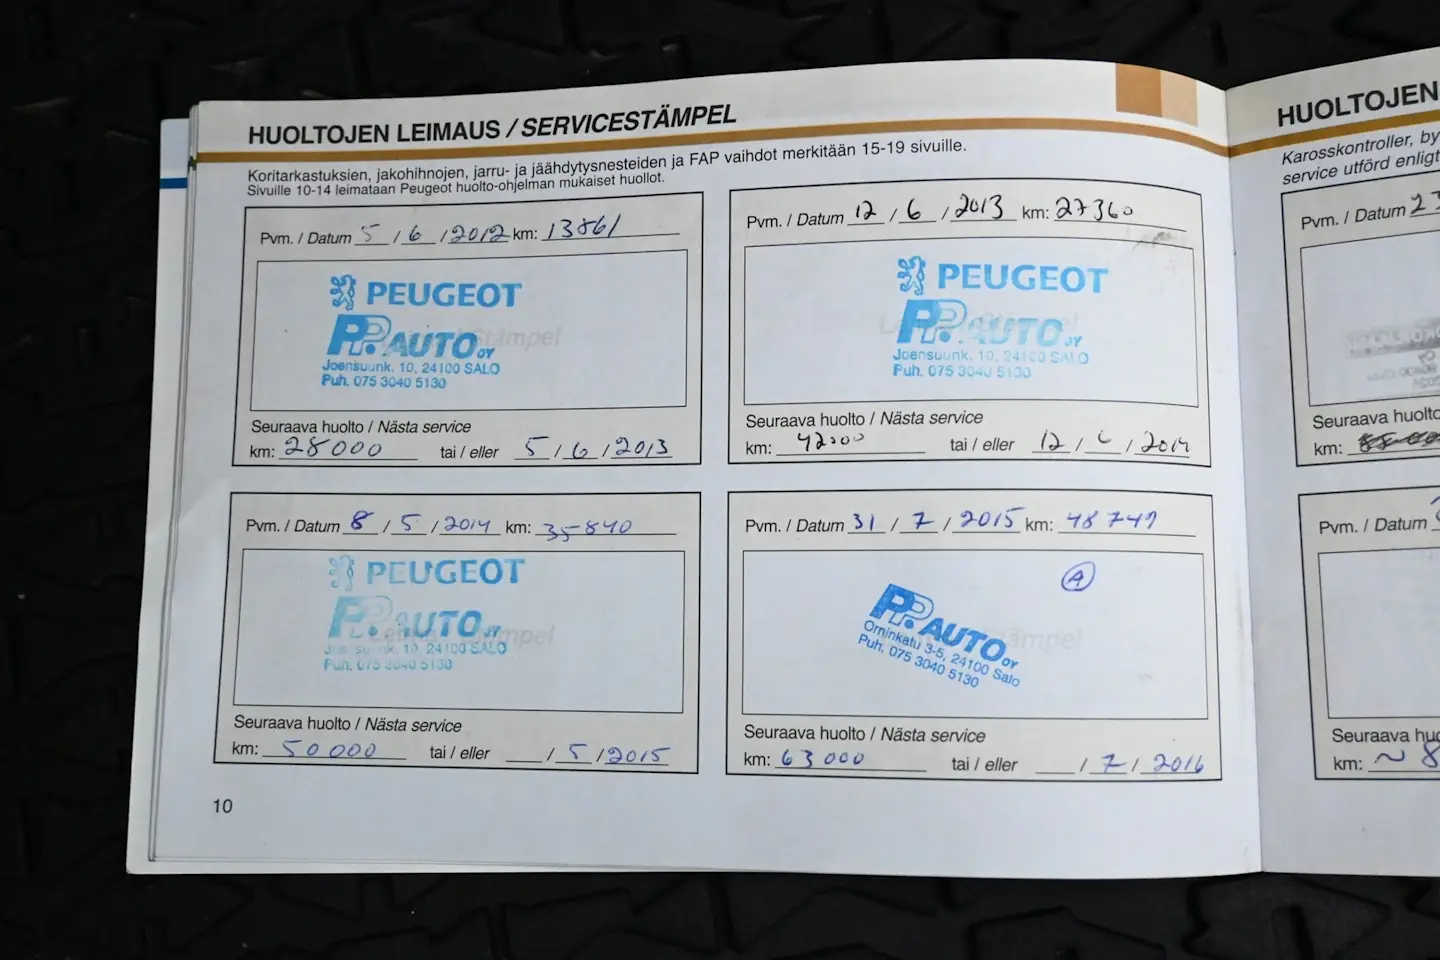 HUOLTOJEN LEIMAUS / SERVICESTÄMPEL
Koritarkastuksien, jakohihnojen, jarru- ja jäähdytysnesteiden ja FAP vaihdot merkitään 15-19 sivuille.
Sivuille 10-14 leimataan Peugeot huolto-ohjelman mukaiset huollot.
Pvm. / Datum 5 / 6 / 2012 km: 13861
PEUGEOT
PP. AUTO OY
Joensuunk. 10, 24100 SALO
Puh. 075 3040 5130
Seuraava huolto / Nästa service
km: 28000 tai / eller 5 / 6 / 2013
Pvm. / Datum 12 / 6 / 2013 km: 27360
PEUGEOT
PP. AUTO OY
Joensuunk. 10, 24100 SALO
Puh. 075 3040 5130
Seuraava huolto / Nästa service
km: 42000 tai / eller 12 / 6 / 2014
Pvm. / Datum 8 / 5 / 2014 km: 35840
PEUGEOT
PP. AUTO OY
Joensuunk. 10, 24100 SALO
Puh. 075 3040 5130
Seuraava huolto / Nästa service
km: 50000 tai / eller / 5 / 2015
Pvm. / Datum 31 / 7 / 2015 km: 48749
A
PP. AUTO OY
Orninkatu 3-5, 24100 Salo
Puh. 075 3040 5130
Seuraava huolto / Nästa service
km: 63000 tai / eller / 7 / 2016
10
HUOLTOJEN
Karosskontroller, by
service utförd enligt
Pvm. / Datum 23
Seuraava huolto
km:
Pvm. / Datum
Seuraava huo
km: ~ 8